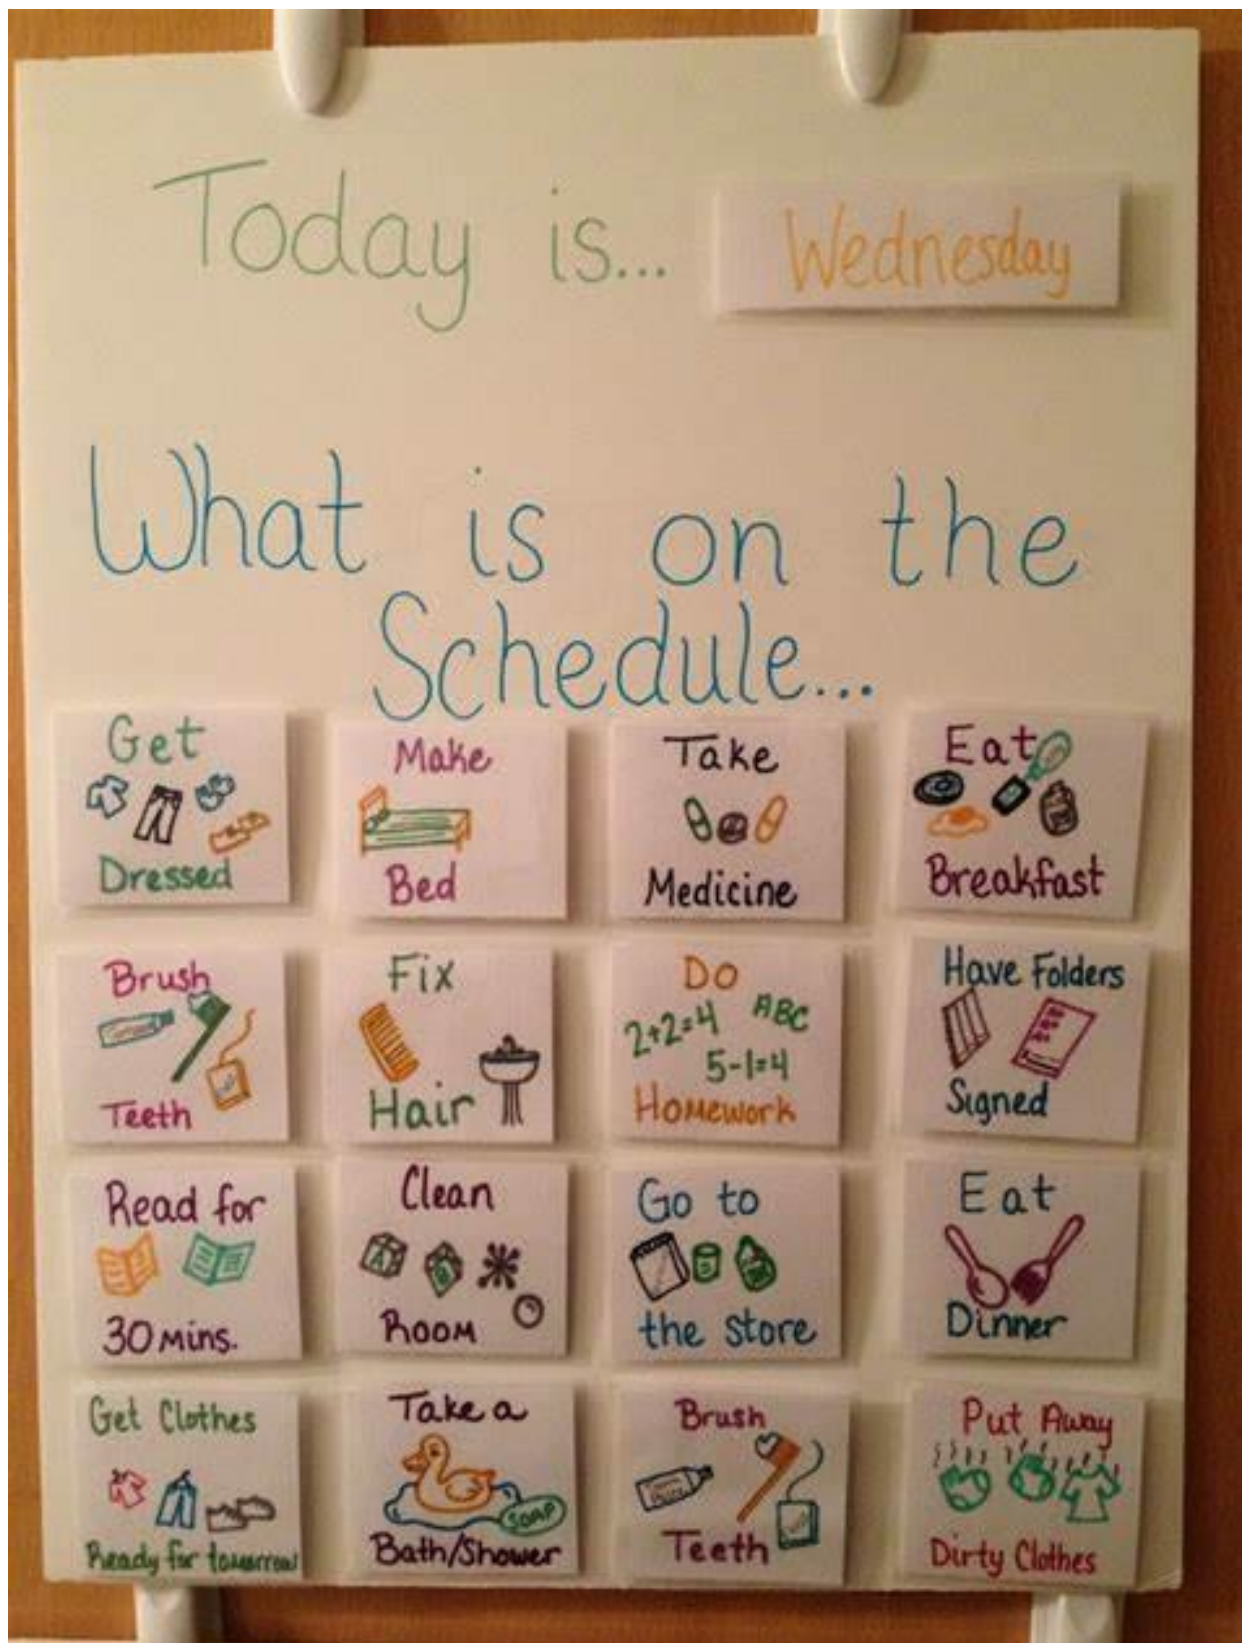 Today is... Wednesday
What is on the
Schedule...
Get
Dressed
Make
Bed
Take
Medicine
Eat
Breakfast
Brush
Teeth
Fix
Hair
Do
2+2=4 ABC
5-1=4
Homework
Have Folders
Signed
Read for
30 mins.
Clean
A
Room
Go to
the store
Eat
Dinner
Get Clothes
Ready for tomorrow
Take a
SOAP
Bath/Shower
Brush
Teeth
Put Away
Dirty Clothes